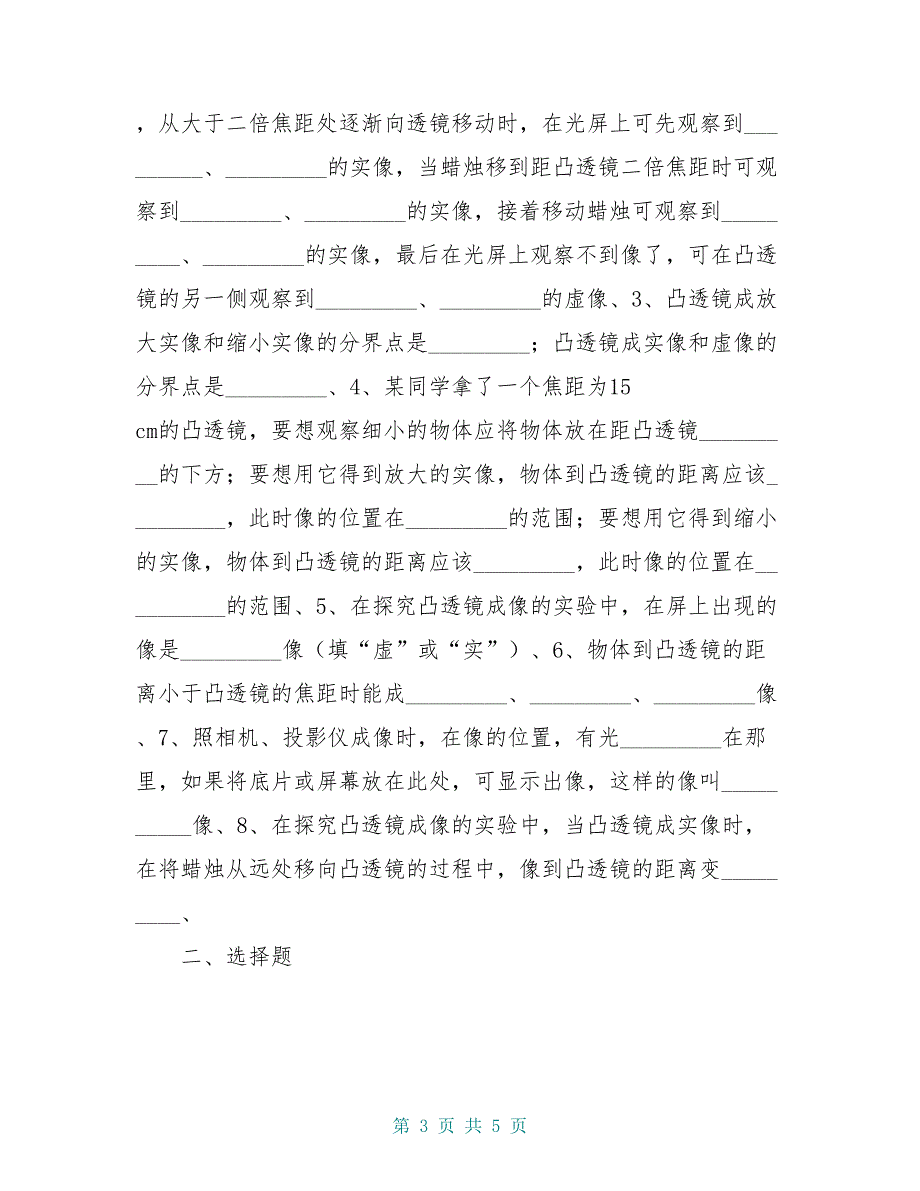 ，从大于二倍焦距处逐渐向透镜移动时，在光屏上可先观察到___
______、_________的实像，当蜡烛移到距凸透镜二倍焦距时可观
察到_________、_________的实像，接着移动蜡烛可观察到_____
____、_________的实像，最后在光屏上观察不到像了，可在凸透
镜的另一侧观察到_________、_________的虚像、3、凸透镜成放
大实像和缩小实像的分界点是_________；凸透镜成实像和虚像的
分界点是_________、4、某同学拿了一个焦距为15
cm的凸透镜，要想观察细小的物体应将物体放在距凸透镜_______
__的下方；要想用它得到放大的实像，物体到凸透镜的距离应该_
________，此时像的位置在_________的范围；要想用它得到缩小
的实像，物体到凸透镜的距离应该_________，此时像的位置在__
________的范围、5、在探究凸透镜成像的实验中，在屏上出现的
像是_________像（填“虚”或“实”）、6、物体到凸透镜的距
离小于凸透镜的焦距时能成_________、_________、_________像
、7、照相机、投影仪成像时，在像的位置，有光_________在那
里，如果将底片或屏幕放在此处，可显示出像，这样的像叫_____
_____像、8、在探究凸透镜成像的实验中，当凸透镜成实像时，
在将蜡烛从远处移向凸透镜的过程中，像到凸透镜的距离变_____
____、
二、选择题
第 3 页 共 5 页